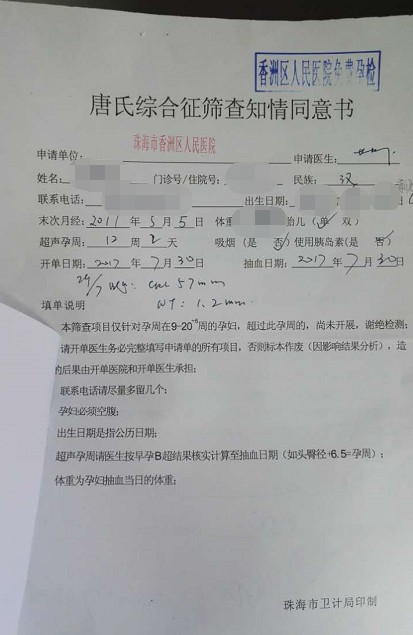 香洲区人民医院免费孕检
唐氏综合征筛查知情同意书
珠海市香洲区人民医院
申请单位: 申请医生:
姓名: 门诊号/住院号: 民族: 汉
联系电话: 出生日期:
末次月经: 2011 年 5 月 5 日 体重 胎儿(单 双)
超声孕周: 12 周 2 天 吸烟(是 否) 使用胰岛素(是 否)
开单日期: 2017 年 7 月 30 日 抽血日期: 2017 年 7 月 30 日
24/7 crl 57mm
填单说明 NT: 1.2mm
本筛查项目仅针对孕周在9-20⁺⁶周的孕妇,超过此孕周的,尚未开展,谢绝检测;
请开单医生务必完整填写申请单的所有项目,否则标本作废(因影响结果分析),造
的后果由开单医院和开单医生承担;
联系电话请尽量多留几个;
孕妇必须空腹;
出生日期是指公历日期;
超声孕周请医生按早孕B超结果核实计算至抽血日期(如头臀径+6.5=孕周);
体重为孕妇抽血当日的体重;
珠海市卫计局印制